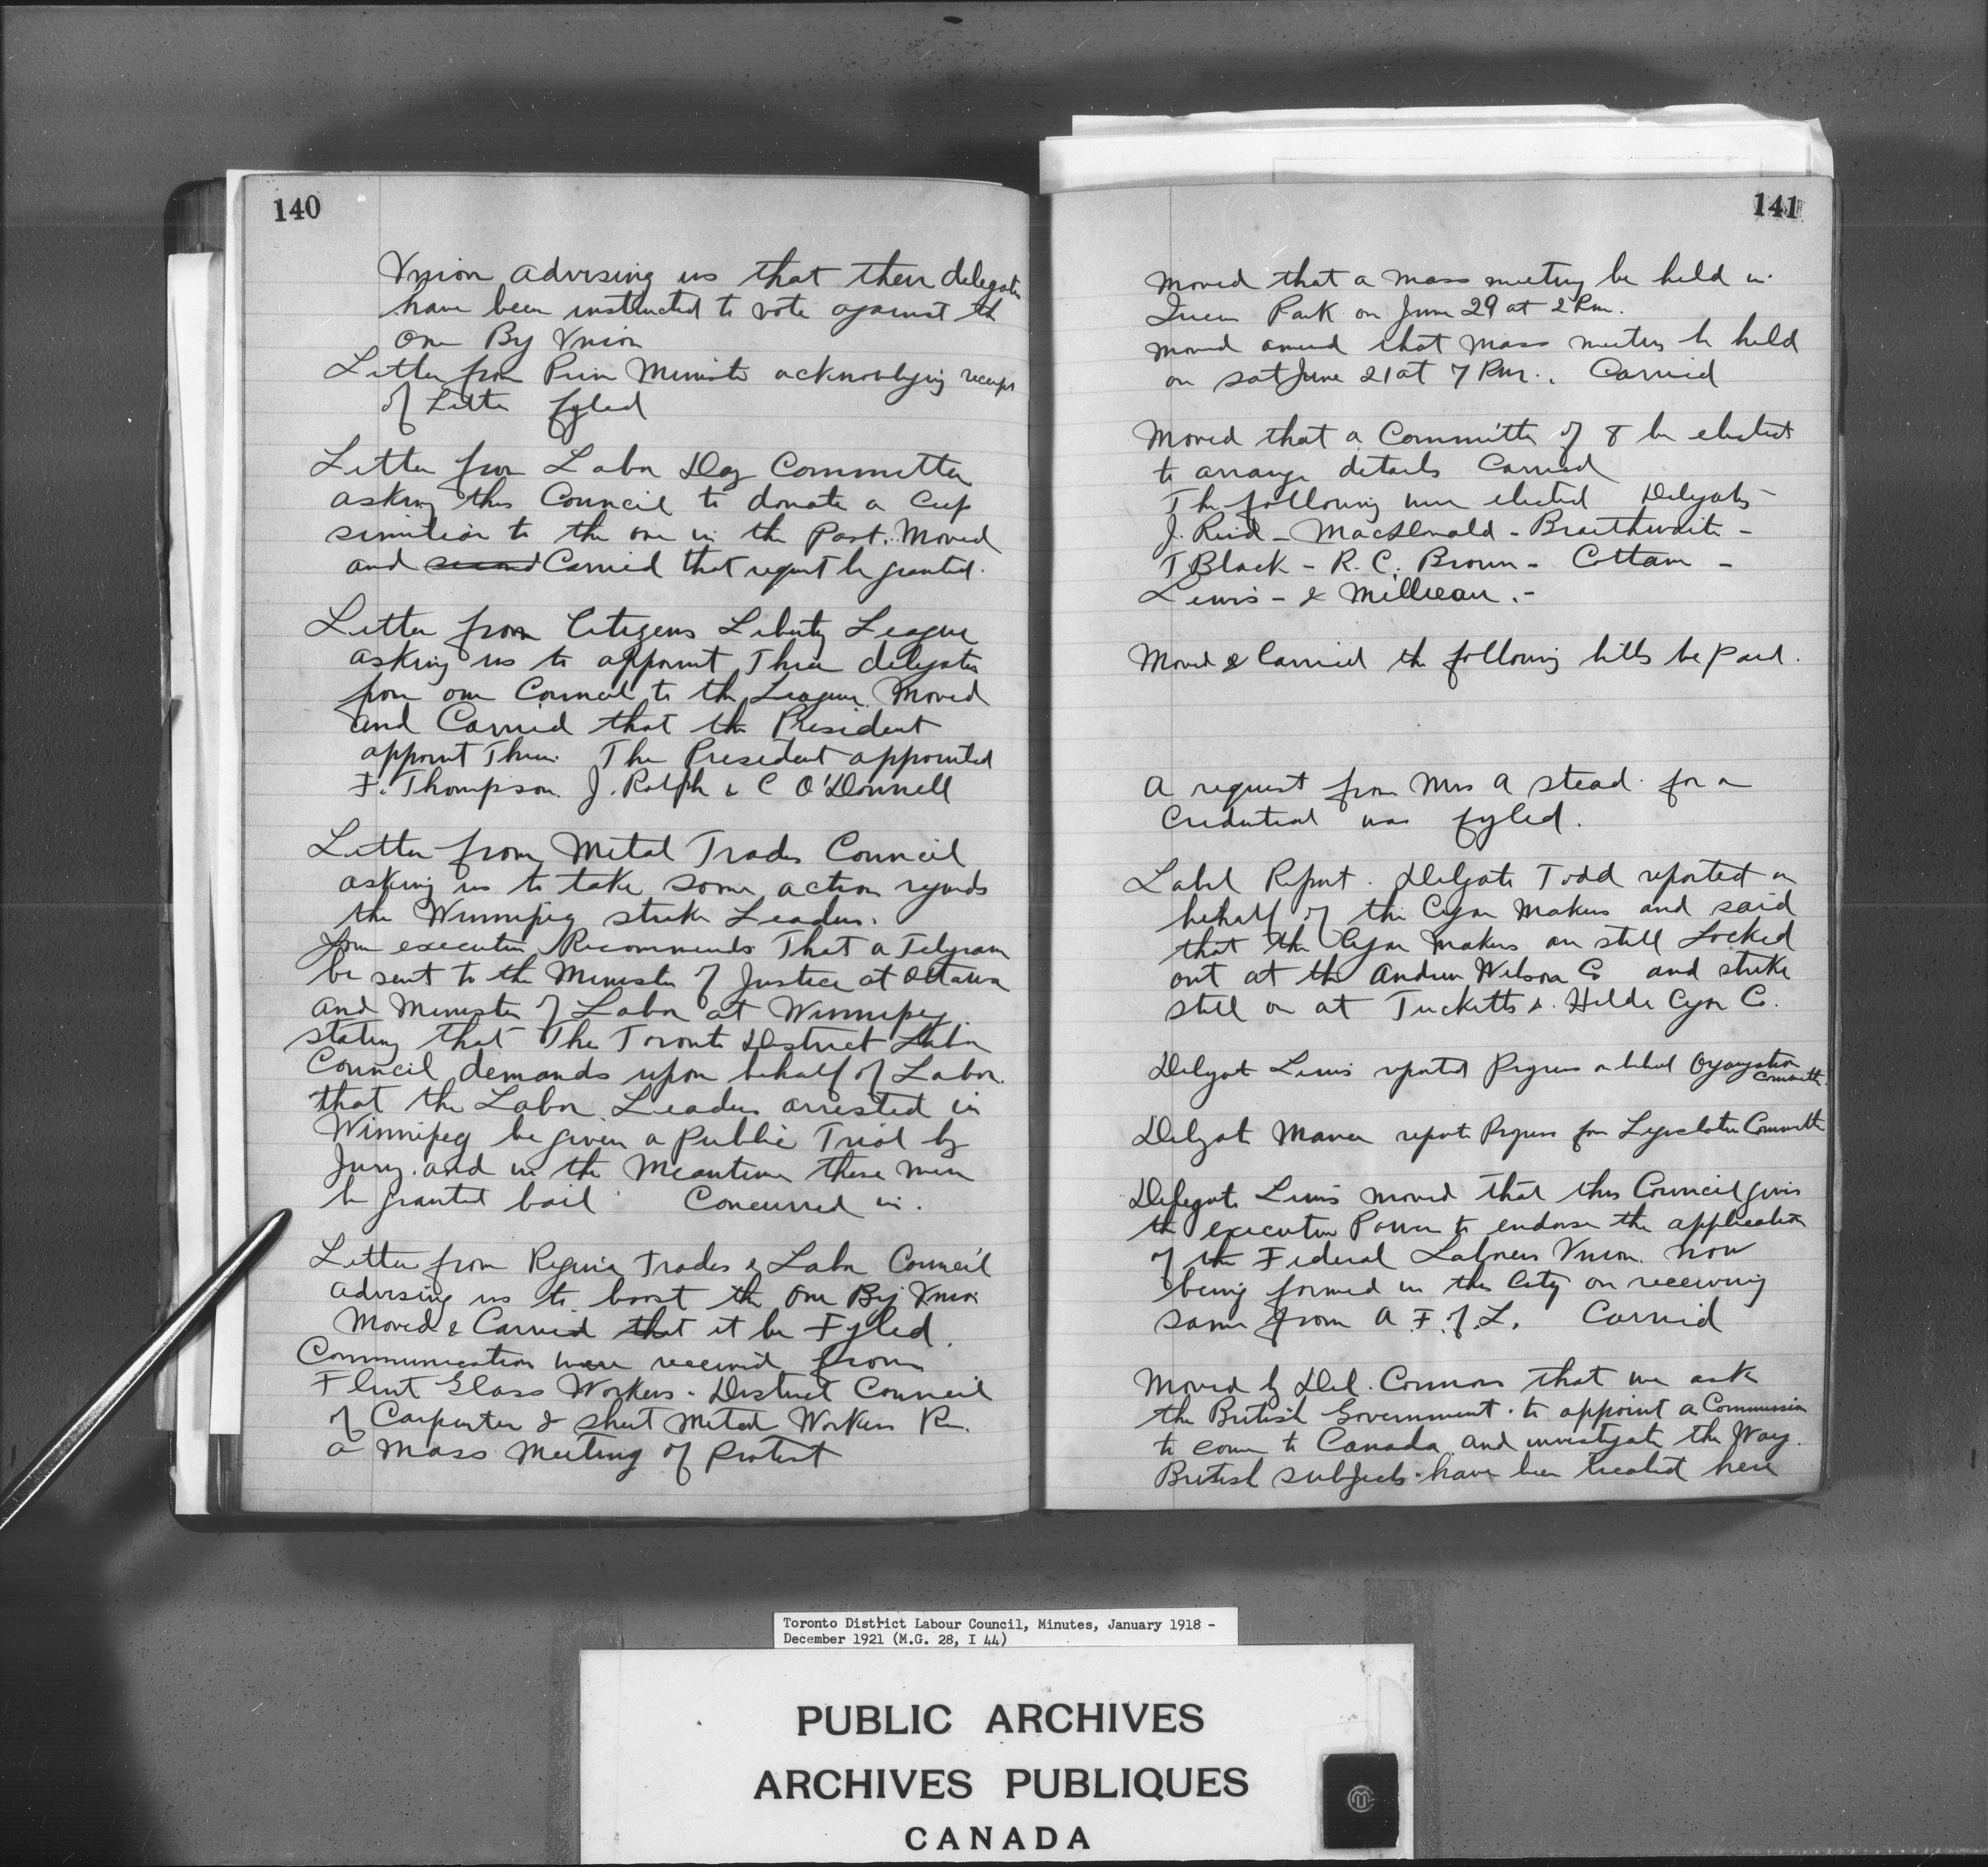 140
Union advising us that their delegates
have been instructed to vote against the
One Big Union
Letter from Prime Minister acknowledging receipt
of Letter fyled
Letter from Labor Day Committee
asking this Council to donate a Cup
similiar to the one in the Past. Moved
and second Carried that request be granted.
Letter from Citizens Liberty League
asking us to appoint Three delegates
from our Council to the League. Moved
and Carried that the President
appoint Them. The President appointed
F. Thompson. J. Ralph & C O'Donnell
Letter from Metal Trades Council
asking us to take some action regards
the Winnipeg strike Leaders.
Your executive Recommends That a Telegram
be sent to the Minister of Justice at Ottawa
and Minister of Labor at Winnipeg
stating that The Toronto District Labor
Council demands upon behalf of Labor.
that the Labor Leaders arrested in
Winnipeg be given a Public Trial by
Jury. and in the Meantime these men
be granted bail Concurred in.
Letter from Regina Trades & Labor Council
advising us to boost the One Big Union
Moved & Carried that it be Fyled.
Communications were received from
Flint Glass Workers. District Council
of Carpenters & Sheet Metal Workers Re.
a Mass Meeting of Protest
141
Moved that a Mass meeting be held in
Queens Park on June 29 at 2 P.m.
Moved amend that Mass meeting be held
on Sat June 21 at 7 P.m. Carried
Moved that a Committee of 8 be elected
to arrange details Carried
The following were elected Delegates -
J. Reid - MacDonald - Braithwaite -
T Black - R. C. Brown - Cottam -
Lewis - & Millican. -
Moved & Carried the following bills be paid.
A request from Mrs A Stead for a
Credential was fyled.
Label Report. Delegate Todd reported on
behalf of the Cigar Makers and said
that the Cigar Makers are still Locked
out at the Andrew Wilson Co and strike
still on at Tucketts & Hilda Cigar Co.
Delegate Lewis reported Progress on behalf Organization
Committee.
Delegate reports Progress for Legislative Committee
Delegate Lewis moved that this Council gives
the executive Power to endorse the application
of the Federal Laborers Union now
being formed in this City on receiving
same from A. F. of L. Carried
Moved by Del. Connors that we ask
the British Government to appoint a Commission
to come to Canada and investigate the Way
British subjects have been treated here
Toronto District Labour Council, Minutes, January 1918 -
December 1921 (M.G. 28, I 44)
PUBLIC ARCHIVES
ARCHIVES PUBLIQUES
CANADA